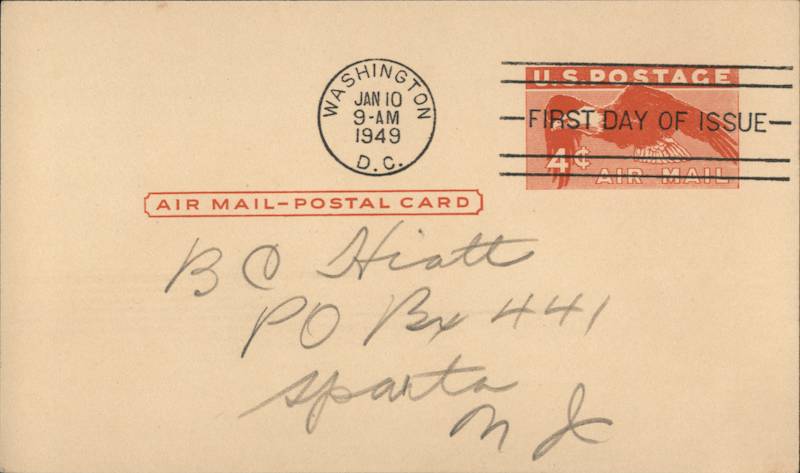 WASHINGTON
JAN 10
9-AM
1949
D.C.
U.S. POSTAGE
FIRST DAY OF ISSUE
4¢
AIR MAIL
AIR MAIL-POSTAL CARD
B C Hiatt
PO Bx 441
Sparta
N J